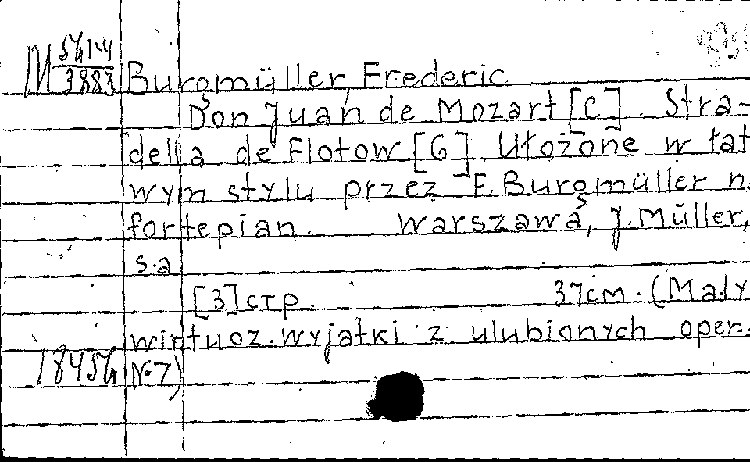 Burgmüller, Frederic
Don Juan de Mozart [C]. Stra-
della de Flotow [G]. Ułożone w łat
wym stylu przez F. Burgmüller n.
fortepian. Warszawa, J. Müller,
s.a.
[3] стр. 37см. (Mały
wirtuoz. wyjątki z ulubionych oper.
N.7)